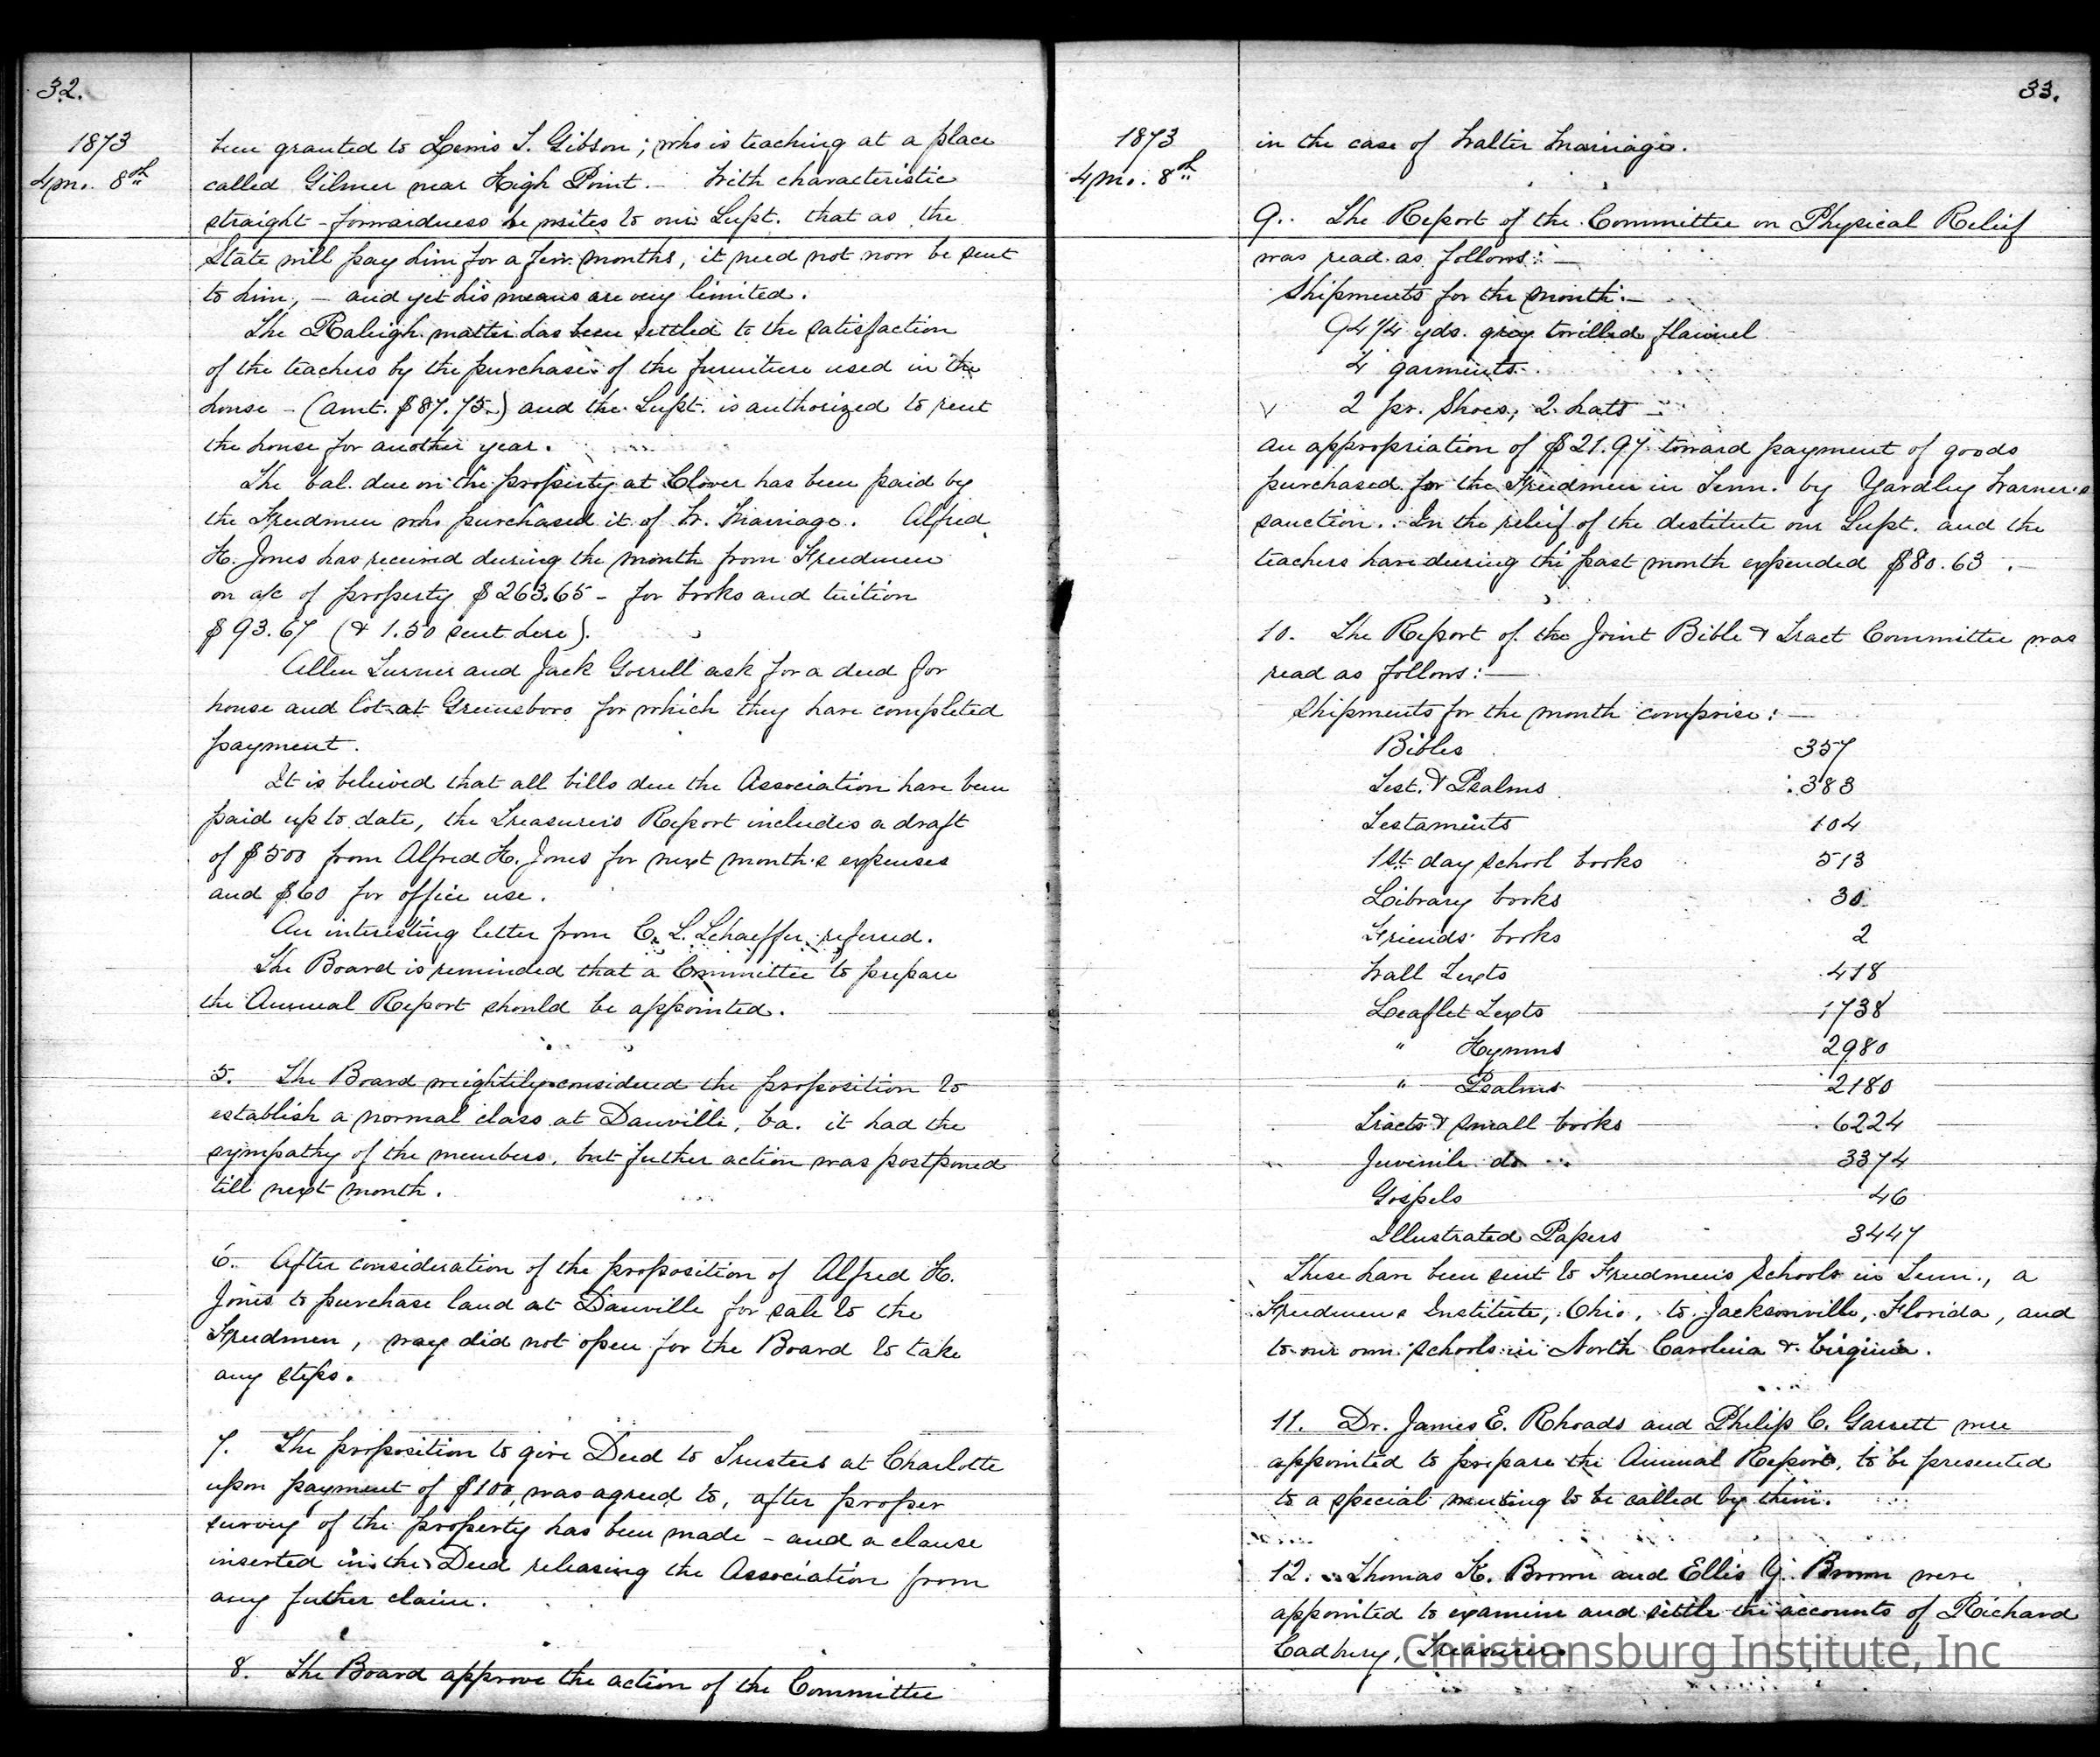 32.
1873
4 mo. 8th
been granted to Lewis S. Gibson; who is teaching at a place
called Gilmer near High Point. — With characteristic
straight-forwardness he writes to our Supt. that as the
State will pay him for a few months, it need not now be sent
to him, — and yet his means are very limited.
The Raleigh matter has been settled to the satisfaction
of the teachers by the purchase of the furniture used in the
house — (amt. $87.75) and the Supt. is authorized to rent
the house for another year.
The bal. due on the property at Clover has been paid by
the Freedmen who purchased it of W. Marriage. Alfred
H. Jones has received during the month from Freedmen
on a/c of property $263.65 — for books and tuition
$93.67 (& 1.50 sent here).
Allen Turner and Jack Gorrell ask for a deed for
house and lot at Greensboro for which they have completed
payment.
It is believed that all bills due the Association have been
paid up to date, the Treasurer's Report includes a draft
of $500 from Alfred H. Jones for next month's expenses
and $60 for office use.
An interesting letter from C. L. Schaeffer referred.
The Board is reminded that a Committee to prepare
the Annual Report should be appointed.
5. The Board weightily considered the proposition to
establish a normal class at Danville, Va. it had the
sympathy of the members, but futher action was postponed
till next month.
6. After consideration of the proposition of Alfred H.
Jones to purchase land at Danville for sale to the
Freedmen, way did not open for the Board to take
any steps.
7. The proposition to give Deed to Trustees at Charlotte
upon payment of $100, was agreed to, after proper
survey of the property has been made — and a clause
inserted in the Deed releasing the Association from
any futher claim.
8. The Board approve the action of the Committee
33.
1873
4 mo. 8th
in the case of Walter Marriage.
9. The Report of the Committee on Physical Relief
was read as follows: —
Shipments for the month: —
94 1/4 yds. grey twilled flannel
4 garments
2 pr. Shoes, 2 hats —
an appropriation of $21.97 toward payment of goods
purchased for the Freedmen in Tenn. by Yardley Warner's
sanction. In the relief of the destitute our Supt. and the
teachers have during the past month expended $80.63. —
10. The Report of the Joint Bible & Tract Committee was
read as follows: —
Shipments for the month comprise: —
Bibles 357
Test. & Psalms 383
Testaments 104
1st day School books 513
Library books 30
Friends' books 2
Wall Texts 418
Leaflet Texts 1738
" Hymns 2980
" Psalms 2180
Tracts & small books 6224
Juvenile do 3374
Gospels 46
Illustrated Papers 3447
These have been sent to Freedmen's Schools in Tenn., a
Freedmen's Institute, Ohio, to Jacksonville, Florida, and
to our own schools in North Carolina & Virginia.
11. Dr. James E. Rhoads and Philip C. Garrett were
appointed to prepare the Annual Report, to be presented
to a special meeting to be called by them.
12. Thomas K. Brown and Ellis Y. Brown were
appointed to examine and settle the accounts of Richard
Cadbury, Treasurer.
Christiansburg Institute, Inc